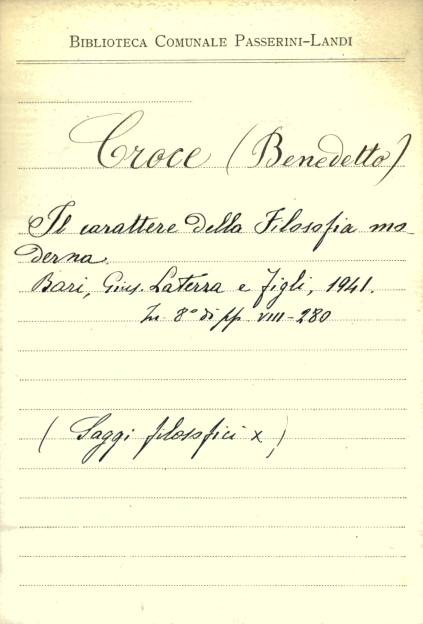 BIBLIOTECA COMUNALE PASSERINI-LANDI
Croce (Benedetto)
Il carattere della Filosofia mo_
derna.
Bari, Gius. Laterza e figli, 1941.
In 8º di pp. VIII-280
(Saggi filosofici X)